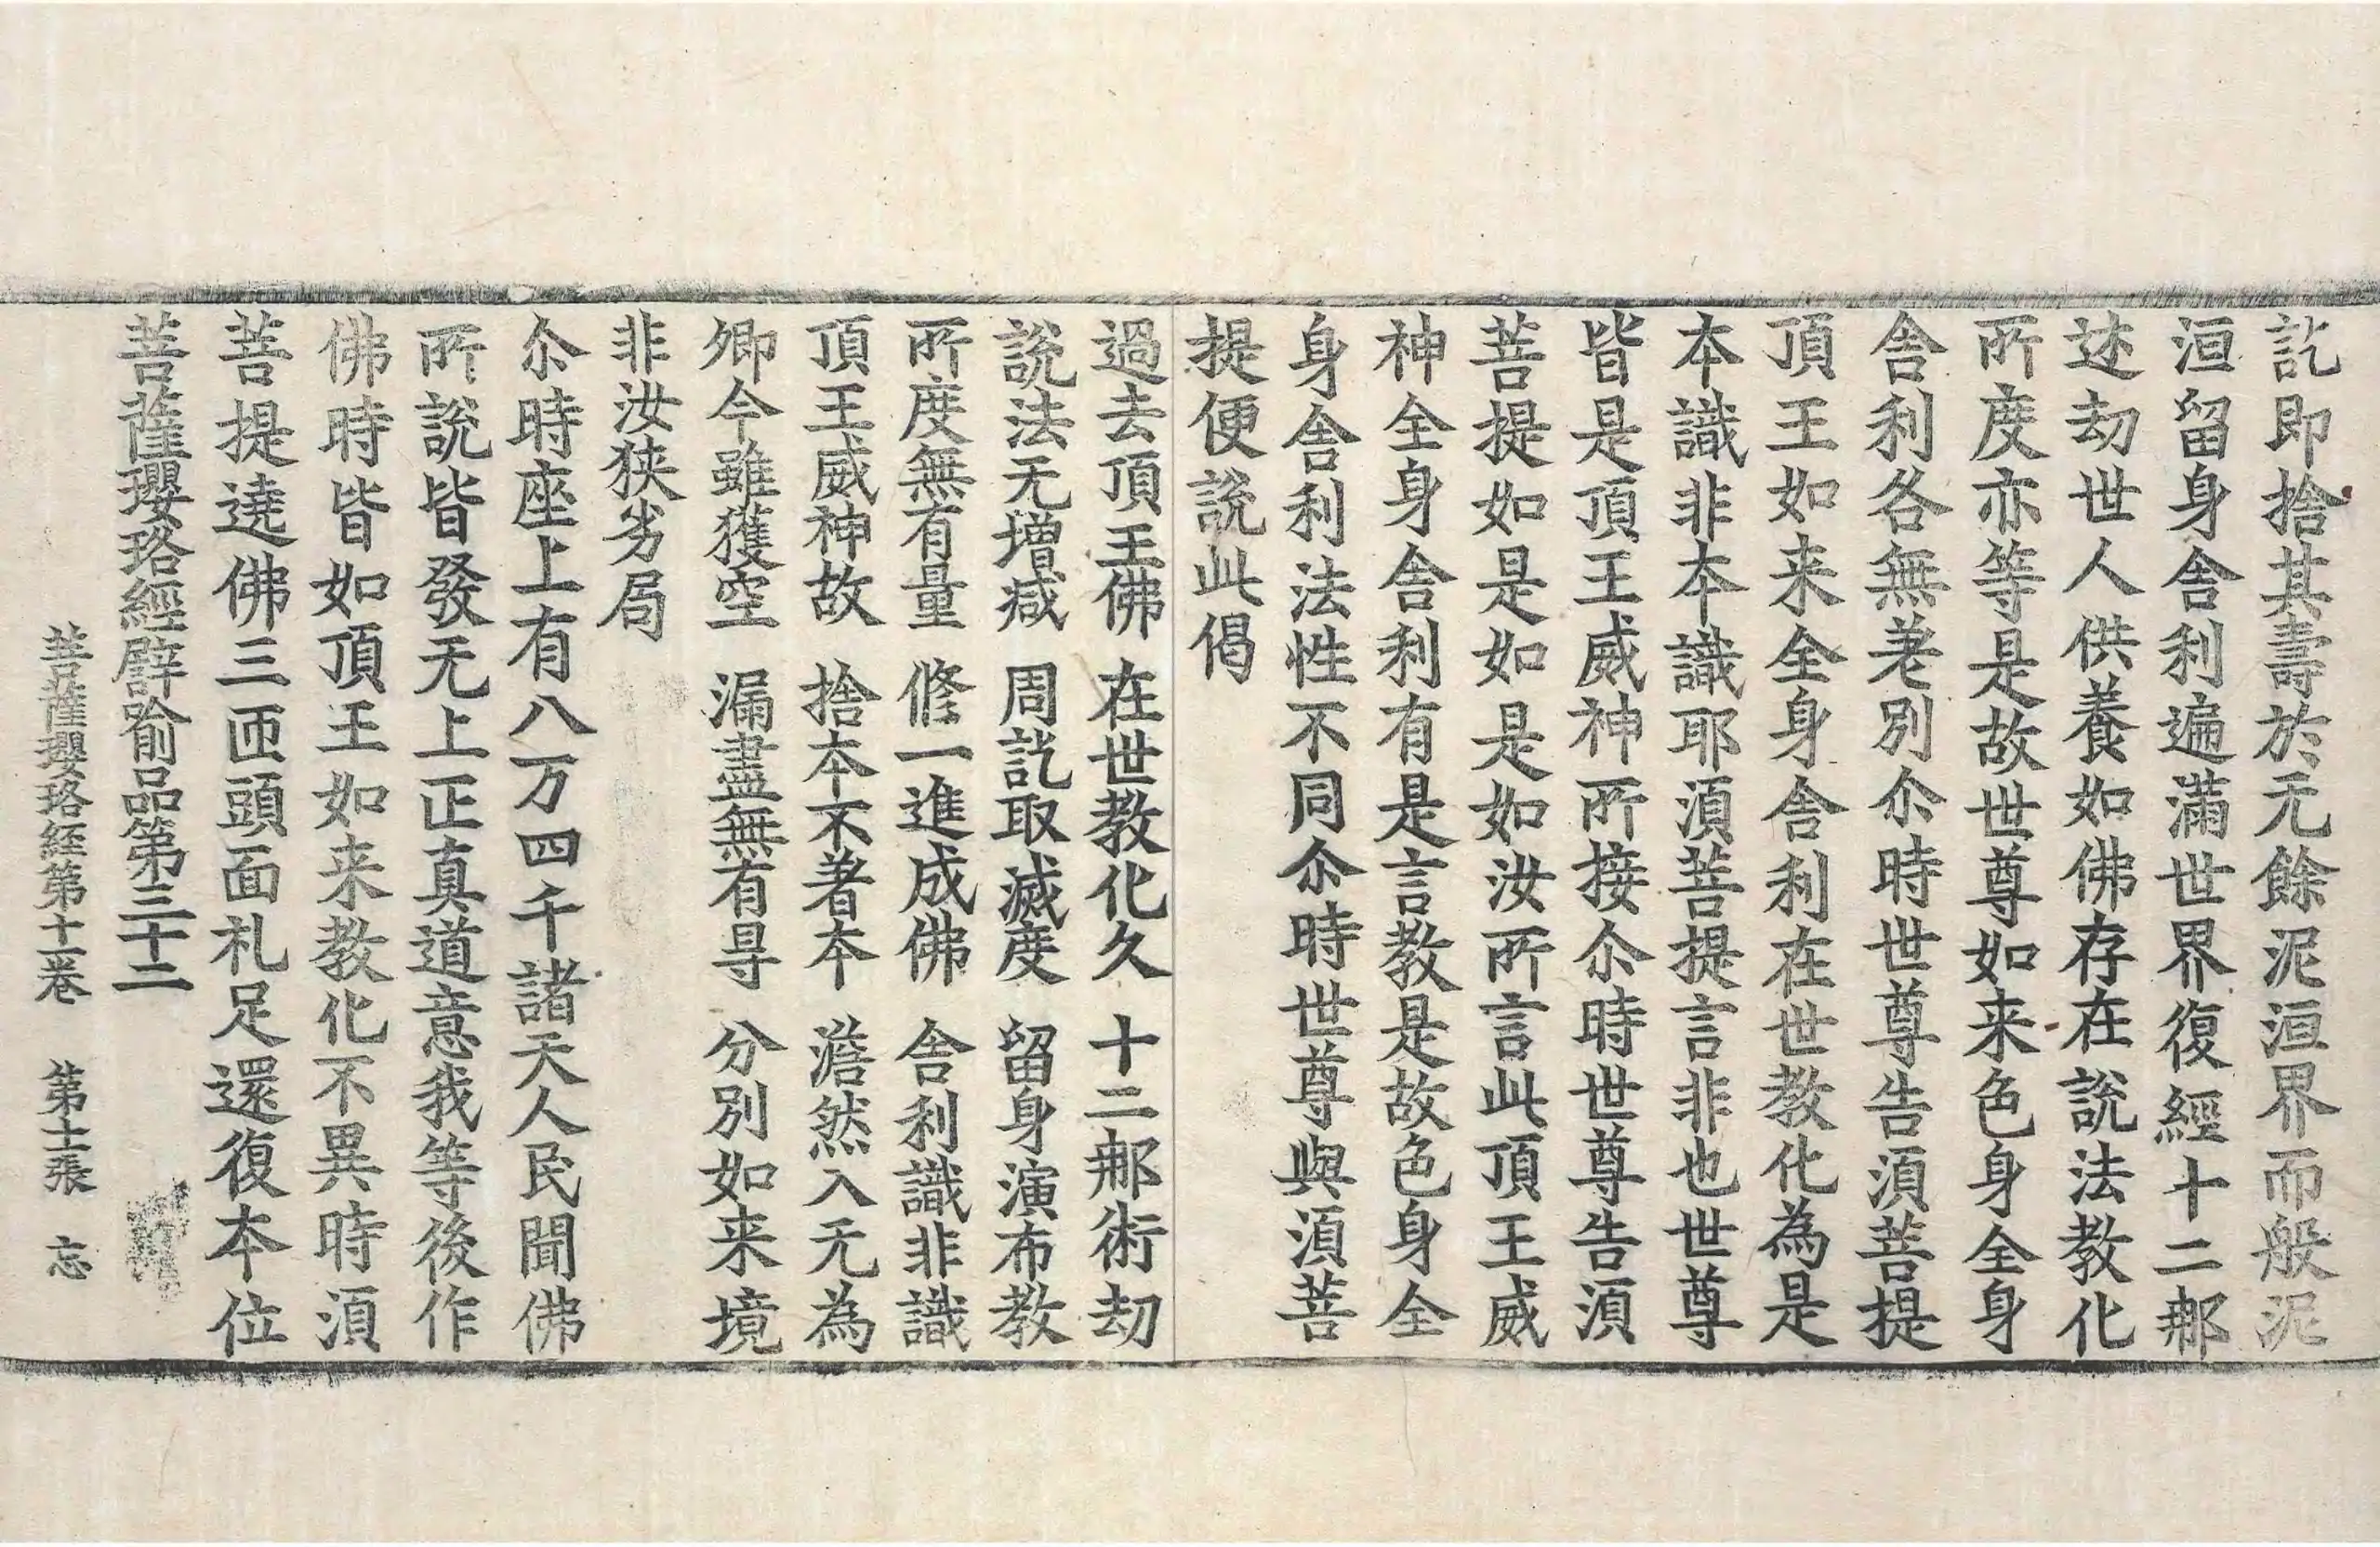 訖即捨其壽於无餘泥洹界而般泥
洹留身舍利遍滿世界復經十二郍
迷劫世人供養如佛存在說法教化
所度亦等是故世尊如来色身全身
舍利各無差別尒時世尊告湏菩提
頂王如来全身舍利在世教化為是
本識非本識耶湏菩提言非也世尊
皆是頂王威神所接尒時世尊告湏
菩提如是如是如汝所言此頂王威
神全身舍利有是言教是故色身全
身舍利法性不同尒時世尊與湏菩
提便說此偈
過去頂王佛　在世教化久　十二郍術劫
說法无增減　周訖取滅度　留身演布教
所度無有量　修一進成佛　舍利識非識
頂王威神故　捨本不著本　澹然入无為
卿今雖獲空　漏盡無有㝵　分別如来境
非汝狹劣局
尒時座上有八万四千諸天人民聞佛
所說皆發无上正真道意我等後作
佛時皆如頂王如来教化不異時湏
菩提遶佛三匝頭面礼足還復本位
菩薩瓔珞經譬喻品第三十二
菩薩瓔珞経第十一卷　第十一張　忘